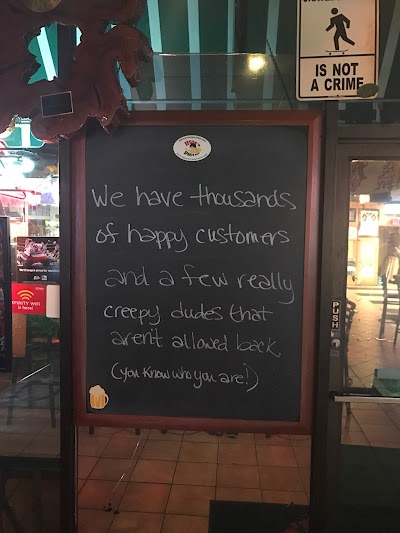 IS NOT
A CRIME
We have thousands
of happy customers
and a few really
creepy dudes that
aren't allowed back
(you know who you are!)
PUSH
XFINITY WIFI